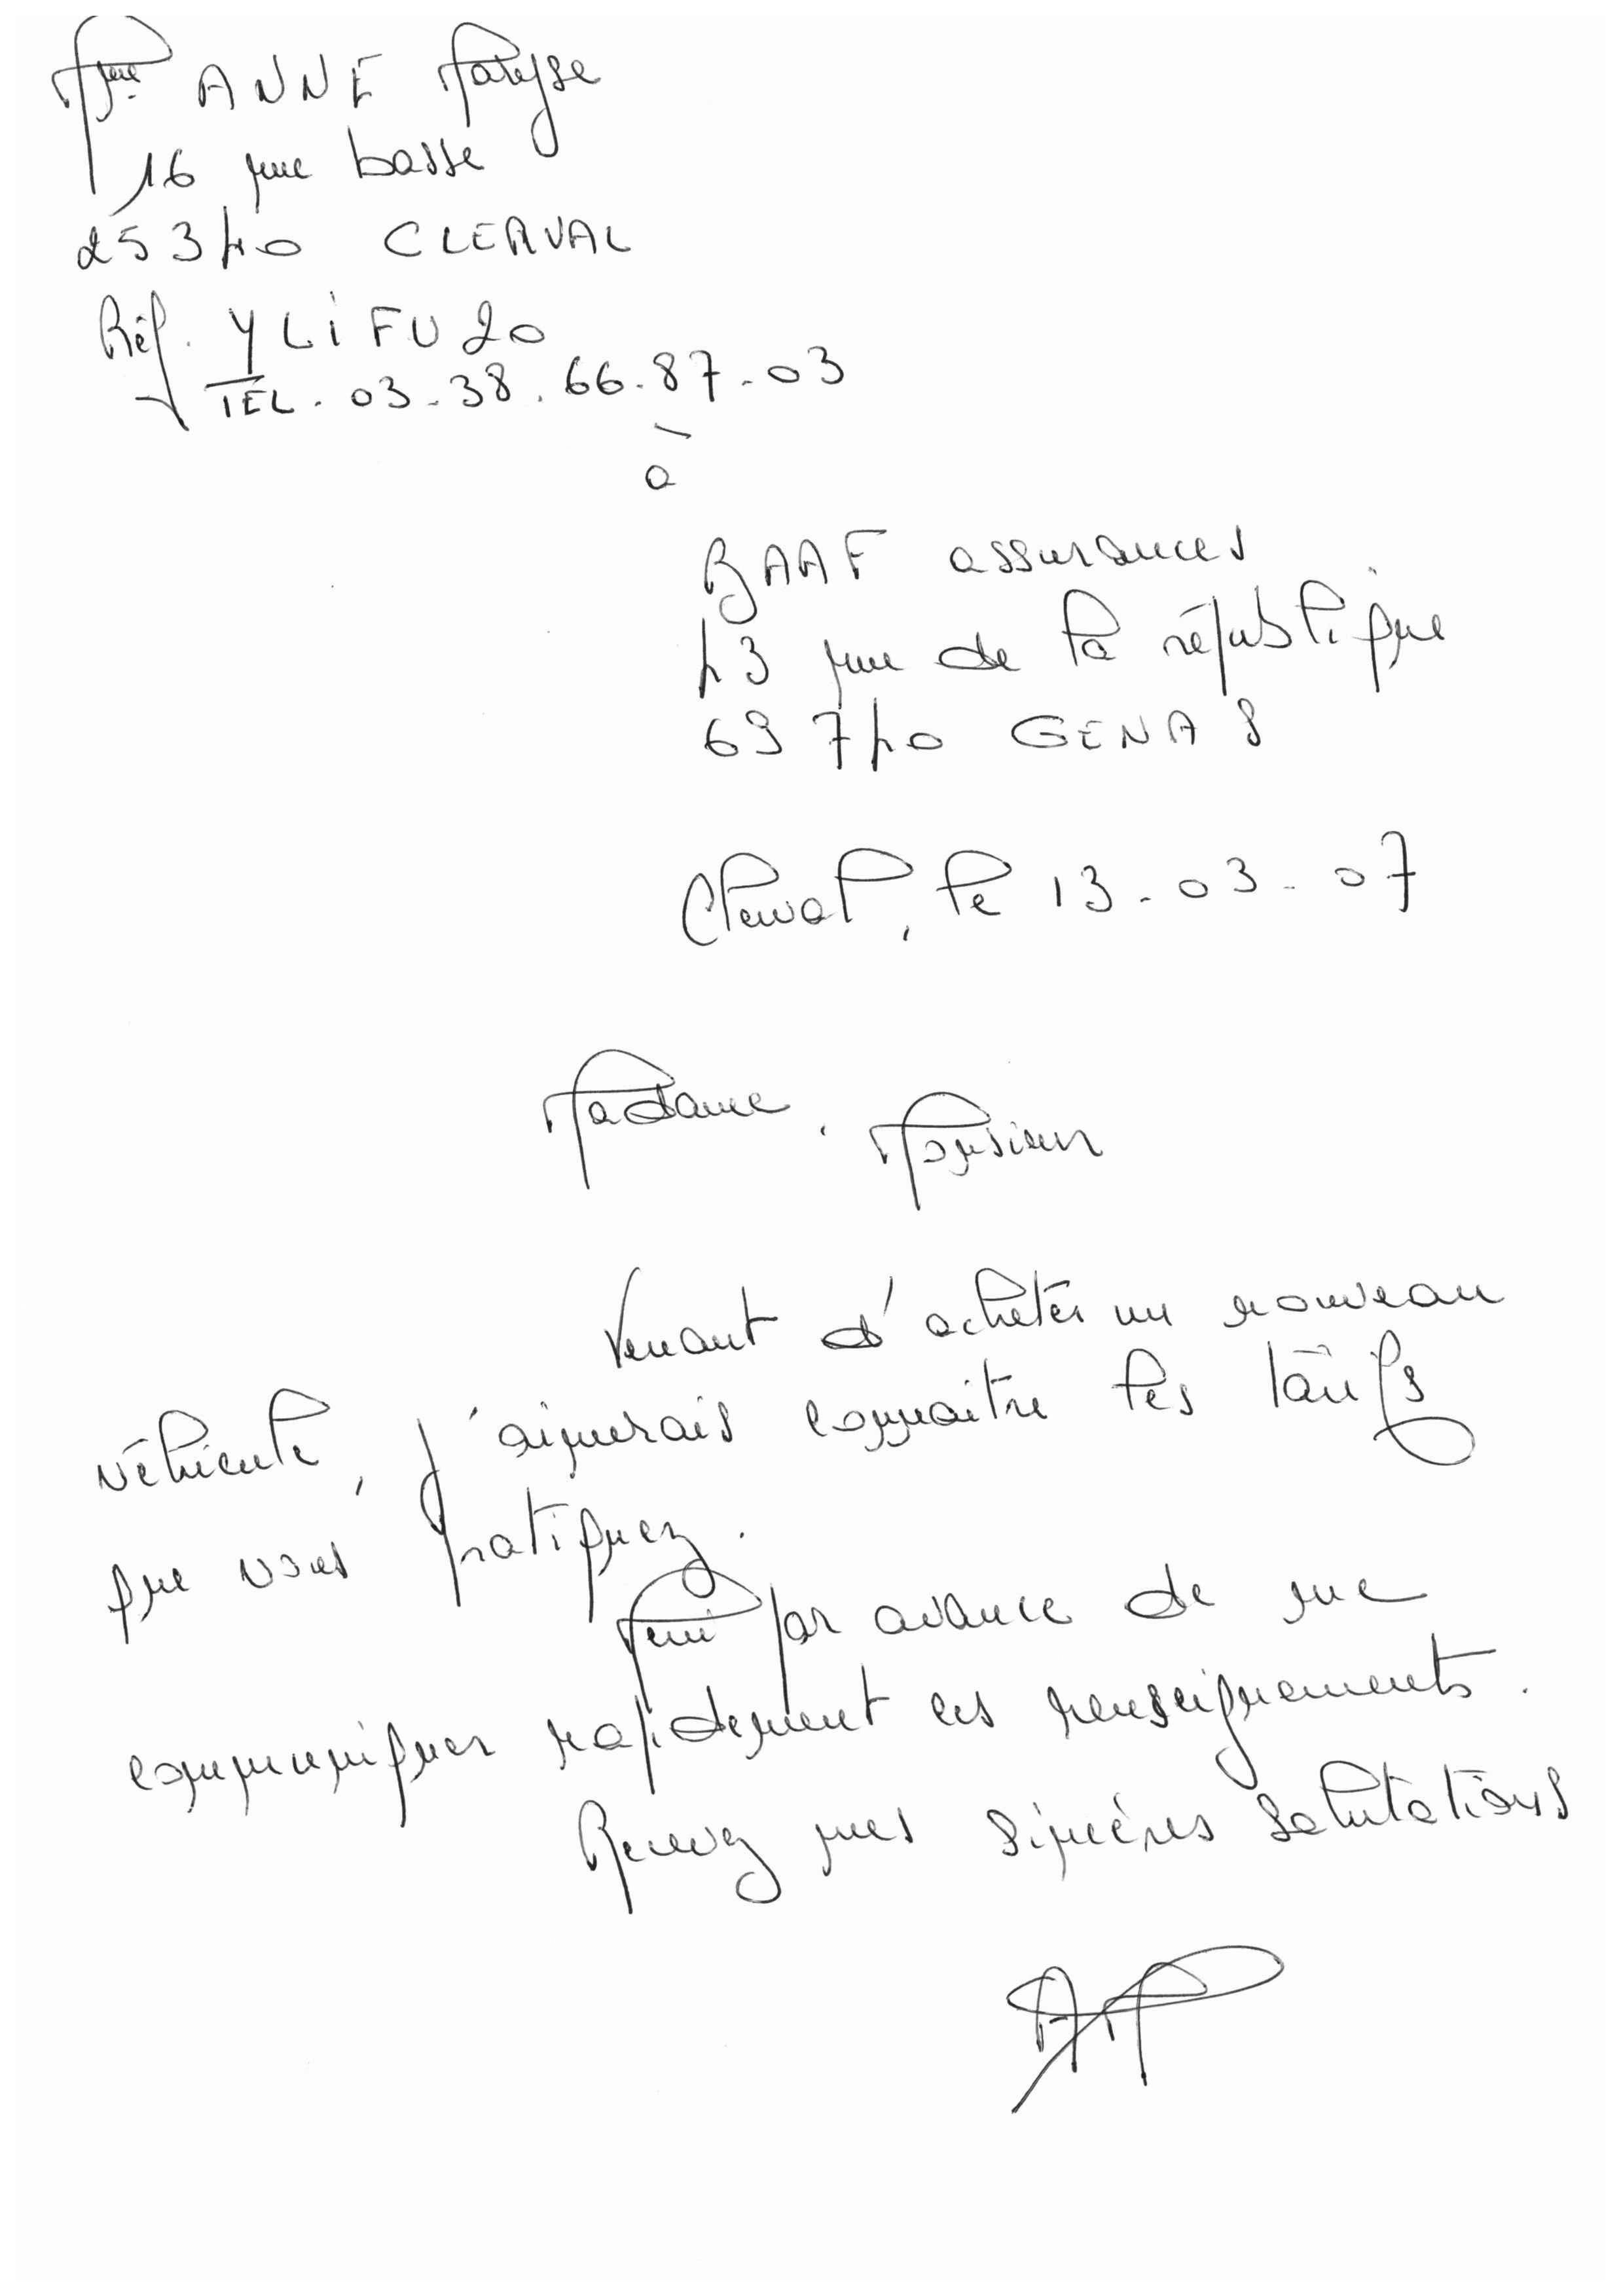 Mme ANNE Maryse
16 rue basse
25340 CLERVAL
Réf. YLIFU20
TÉL. 03.38.66.87.03
à
BAAF assurances
43 rue de la république
69740 GENAS
Clerval, le 13.03.07
Madame, Monsieur
Venant d'acheter un nouveau
véhicule, j'aimerais connaître les tarifs
que vous pratiquez.
Merci par avance de me
communiquer rapidement ces renseignements.
Recevez mes sincères salutations